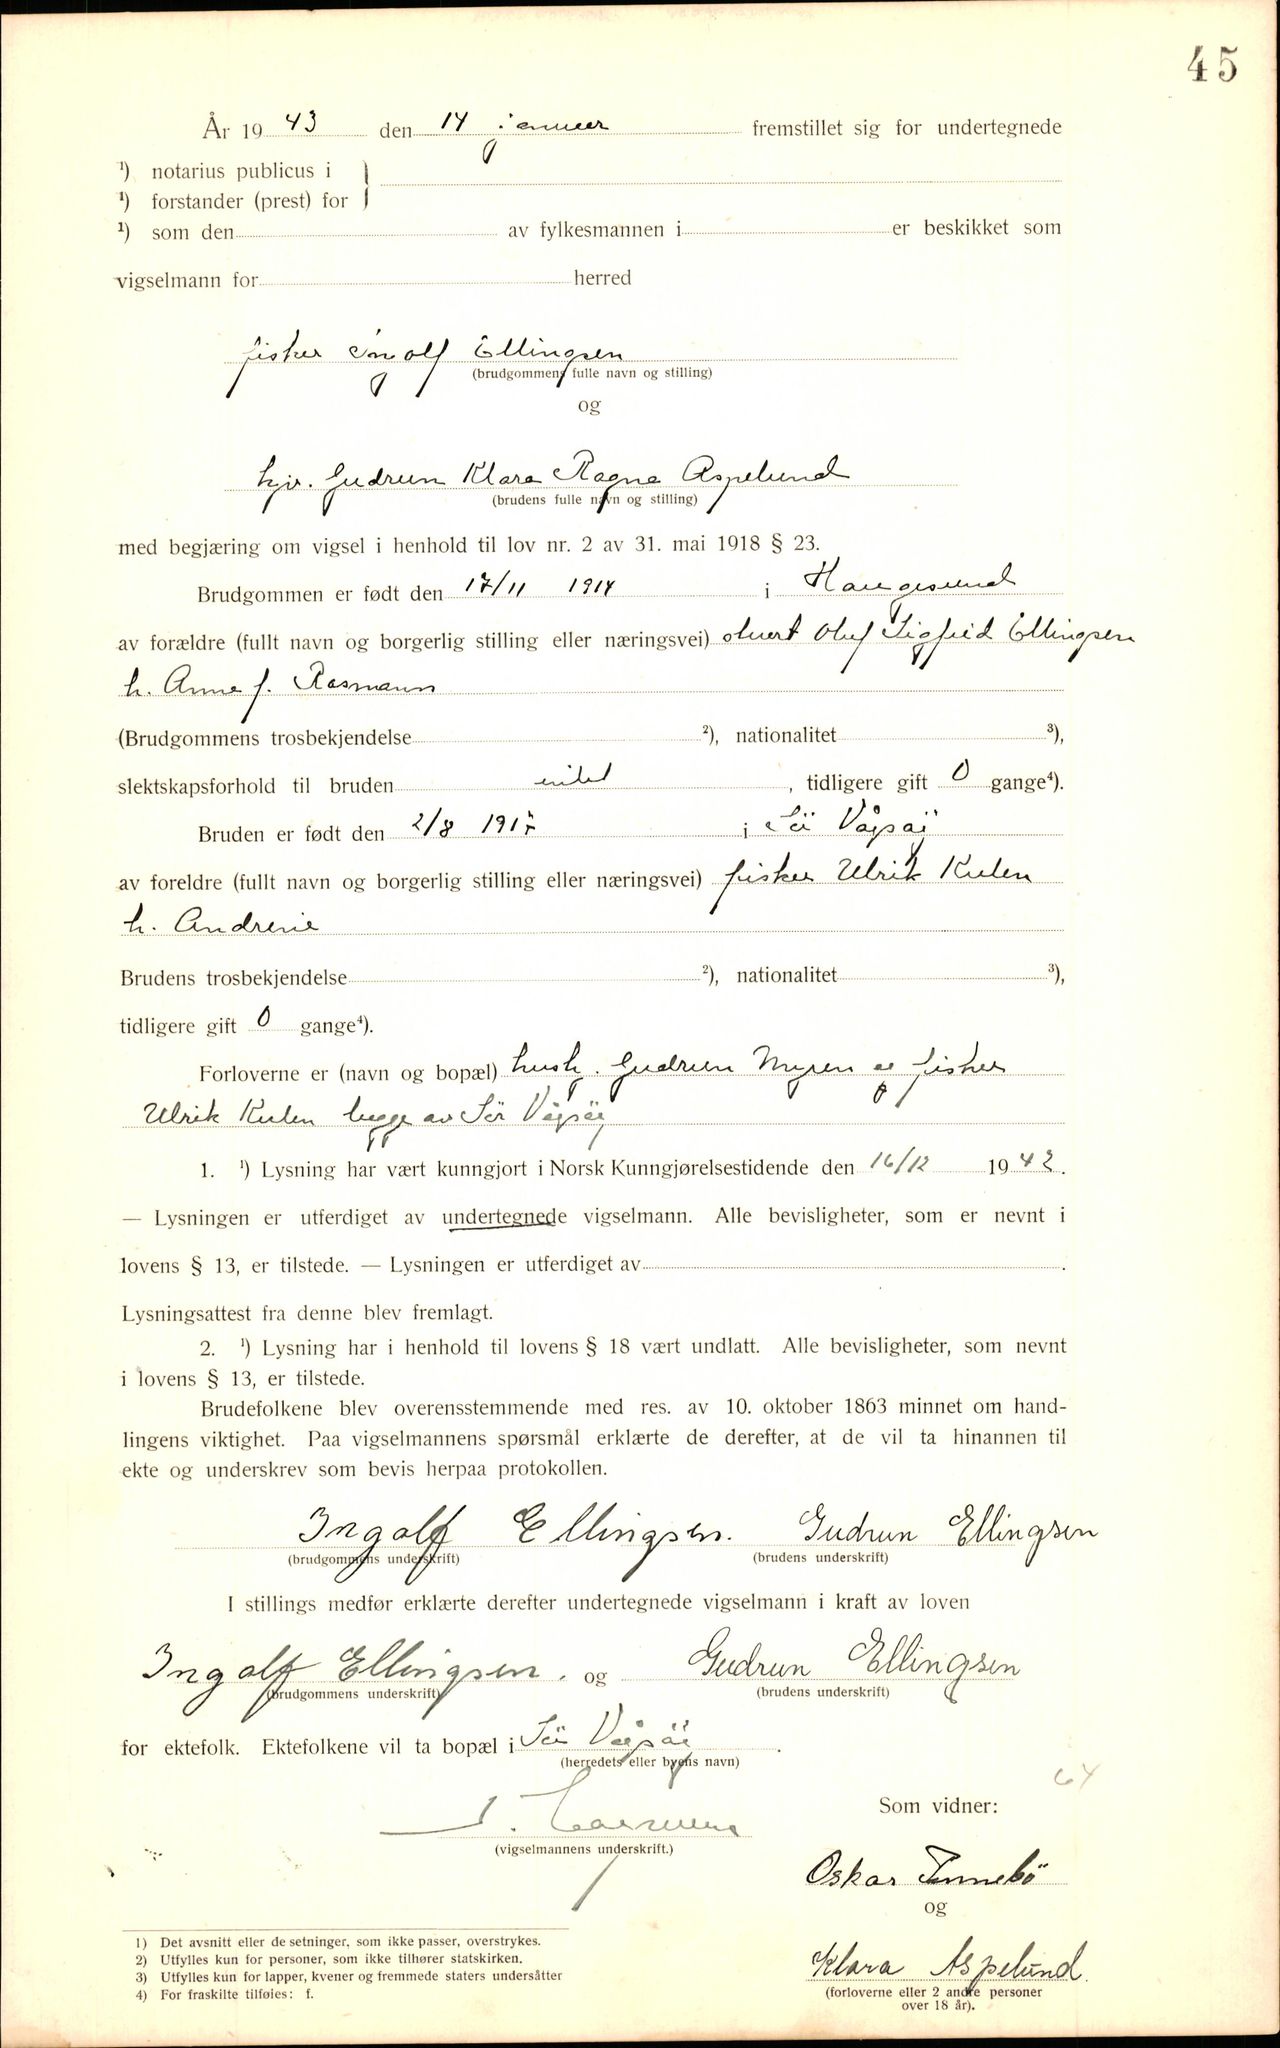 45
År 1943 den 14 januar fremstillet sig for undertegnede
¹) notarius publicus i
¹) forstander (prest) for
¹) som den av fylkesmannen i er beskikket som
vigselmann for herred
fisker Ingolf Ellingsen
(brudgommens fulle navn og stilling)
og
hjv. Gudrun Klara Ragna Aspelund
(brudens fulle navn og stilling)
med begjæring om vigsel i henhold til lov nr. 2 av 31. mai 1918 § 23.
Brudgommen er født den 17/11 1914 i Haugesund
av forældre (fullt navn og borgerlig stilling eller næringsvei) Oluf Sigfrid Ellingsen
h. Anna f. Rasmann
(Brudgommens trosbekjendelse ²), nationalitet ³),
slektskapsforhold til bruden intet, tidligere gift 0 gange⁴).
Bruden er født den 2/8 1917 i Sör Vågsöy
av foreldre (fullt navn og borgerlig stilling eller næringsvei) fisker Ulrik Kulen
h. Andrine
Brudens trosbekjendelse ²), nationalitet ³),
tidligere gift 0 gange⁴).
Forloverne er (navn og bopæl) hush. Gudrun Myren og fisker
Ulrik Kulen begge av Sör Vågsöy
1. ¹) Lysning har vært kunngjort i Norsk Kunngjørelsestidende den 16/12 1942.
— Lysningen er utferdiget av undertegnede vigselmann. Alle bevisligheter, som er nevnt i
lovens § 13, er tilstede. — Lysningen er utferdiget av .
Lysningsattest fra denne blev fremlagt.
2. ¹) Lysning har i henhold til lovens § 18 vært undlatt. Alle bevisligheter, som nevnt
i lovens § 13, er tilstede.
Brudefolkene blev overensstemmende med res. av 10. oktober 1863 minnet om hand-
lingens viktighet. Paa vigselmannens spørsmål erklærte de derefter, at de vil ta hinannen til
ekte og underskrev som bevis herpaa protokollen.
Ingolf Ellingsen. Gudrun Ellingsen
(brudgommens underskrift) (brudens underskrift)
I stillings medfør erklærte derefter undertegnede vigselmann i kraft av loven
Ingolf Ellingsen. og Gudrun Ellingsen
(brudgommens underskrift) (brudens underskrift)
for ektefolk. Ektefolkene vil ta bopæl i Sör Vågsöy.
(herredets eller byens navn)
64
Som vidner:
(vigselmannens underskrift.)
Oskar Tennebö
og
Klara Aspelund.
(forloverne eller 2 andre personer
over 18 år).
1) Det avsnitt eller de setninger, som ikke passer, overstrykes.
2) Utfylles kun for personer, som ikke tilhører statskirken.
3) Utfylles kun for lapper, kvener og fremmede staters undersåtter
4) For fraskilte tilføies: f.